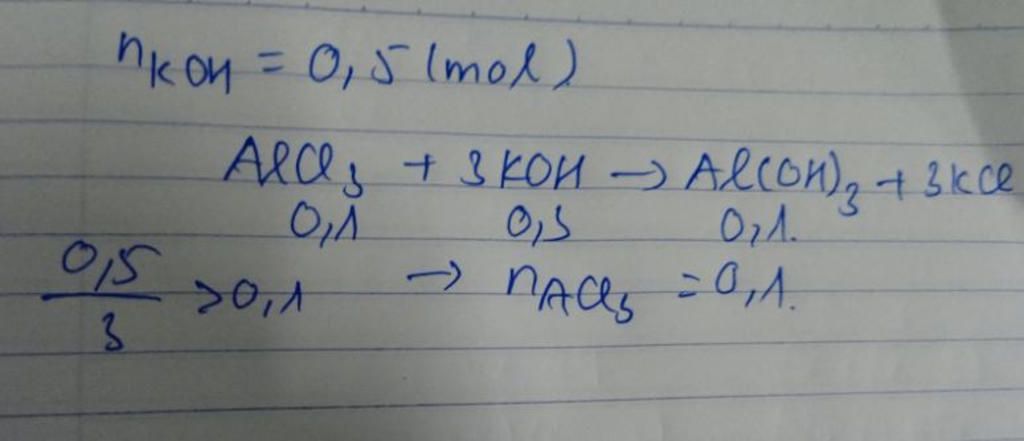 nKOH = 0,5 (mol)
AlCl3 + 3KOH → Al(OH)3 + 3KCl
0,1 0,3 0,1.
0,5/3 > 0,1 → nACl3 = 0,1.